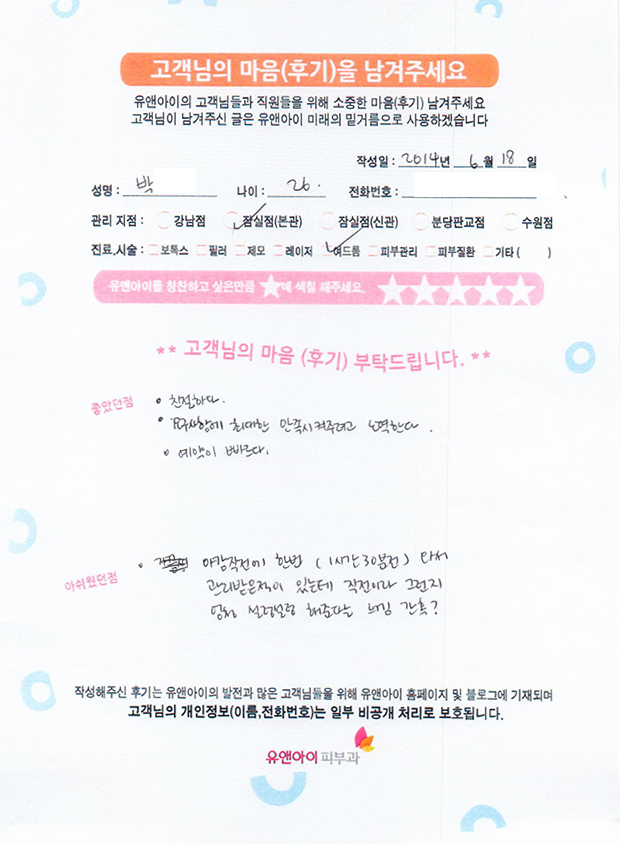 고객님의 마음(후기)을 남겨주세요
유앤아이의 고객님들과 직원들을 위해 소중한 마음(후기) 남겨주세요
고객님이 남겨주신 글은 유앤아이 미래의 밑거름으로 사용하겠습니다
작성일 : 2014년 6월 18일
성명 : 박 나이 : 26. 전화번호 :
관리 지점 : 강남점 잠실점(본관) 잠실점(신관) 분당판교점 수원점
진료,시술 : 보톡스 필러 제모 레이저 여드름 피부관리 피부질환 기타 ( )
유앤아이를 칭찬하고 싶은만큼 ★에 색칠 해주세요. ★★★★★
** 고객님의 마음 (후기) 부탁드립니다. **
좋았던점
• 친절하다.
• 요구사항에 최대한 만족시켜주려고 노력한다.
• 예약이 빠르다.
아쉬웠던점
• 마감직전에 한번 (1시간30분전) 다시
관리받은적이 있는데 직전이라 그런지
엄청 설렁설렁 해준다는 느낌 간혹?
작성해주신 후기는 유앤아이의 발전과 많은 고객님들을 위해 유앤아이 홈페이지 및 블로그에 기재되며
고객님의 개인정보(이름,전화번호)는 일부 비공개 처리로 보호됩니다.
유앤아이 피부과